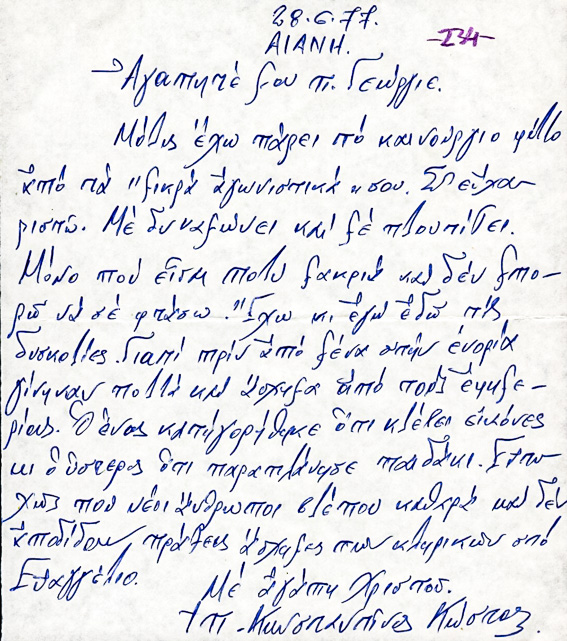 28.6.77.
ΑΙΑΝΗ.
-134-
Ἀγαπητέ μου π. Γεώργιε.
Μόλις ἔχω πάρει τό καινούργιο φύλλο
ἀπό τά "μικρά ἀγωνιστικά" σου. Σ' εὐχα-
ριστῶ. Μέ δυναμώνει καί μέ πλουτίζει.
Μόνο πού εἶμαι πολύ μακριά καί δέν μπο-
ρῶ νά σέ φτάσω. Ἔχω κι ἐγώ ἐδῶ τίς
δυσκολίες. Γιατί πρίν ἀπό μένα στήν ἐνορία
γίνηναν πολλά καί ἄσχημα ἀπό τούς ἐφημε-
ρίους. Ὁ ἕνας κατηγορήθηκε ὅτι κλέβει εἰκόνες
κι ὁ ὕστερος ὅτι παραπλάνησε παιδάκι. Εὐτυ-
χῶς πού νέοι ἄνθρωποι βλέπουν καθαρά καί δέν
ἀποδίδουν πράξεις ἄσχημες τῶν κληρικῶν στό
Εὐαγγέλιο.
Μέ ἀγάπη Χριστοῦ.
π. Κωνσταντῖνος Κώστας